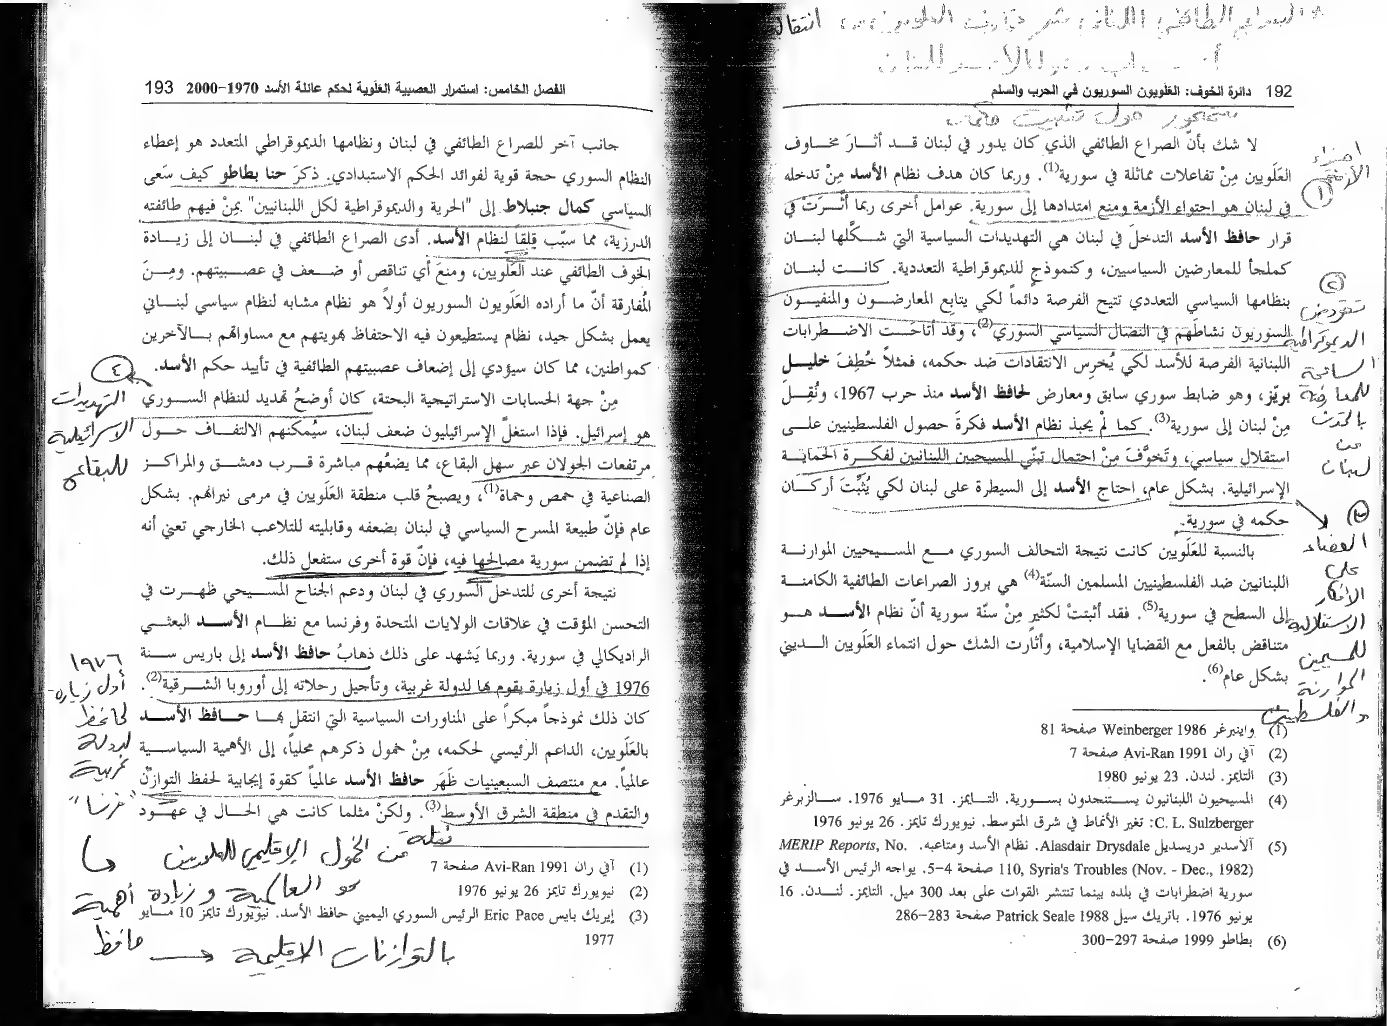 192 دائرة الخوف: العَلَويون السوريون في الحرب والسلم
لا شك بأنّ الصراع الطائفي الذي كان يدور في لبنان قد أثارَ مخاوف
العَلَويين مِنْ تفاعلات مماثلة في سورية(1). وربما كان هدف نظام الأسد مِنْ تدخله
في لبنان هو احتواء الأزمة ومنع امتدادها إلى سورية. عوامل أخرى ربما أثّرَتْ في
قرار حافظ الأسد التدخلَ في لبنان هي التهديدات السياسية التي شكّلها لبنان
كملجأ للمعارضين السياسيين، وكنموذجٍ للديموقراطية التعددية. كانت لبنان
بنظامها السياسي التعددي تتيح الفرصة دائماً لكي يتابع المعارضون والمنفيون
السوريون نشاطَهم في النضال السياسي السوري(2)، وقد أتاحَت الاضطرابات
اللبنانية الفرصة للأسد لكي يُخرس الانتقادات ضد حكمه، فمثلاً خُطِفَ خليل
بريّز، وهو ضابط سوري سابق ومعارض لحافظ الأسد منذ حرب 1967، ونُقِلَ
مِنْ لبنان إلى سورية(3). كما لمْ يحبذ نظام الأسد فكرةَ حصول الفلسطينيين على
استقلال سياسي، وتَخوَّفَ مِنْ احتمال تبنّي المسيحيين اللبنانيين لفكرة الحماية
الإسرائيلية. بشكل عام، احتاج الأسد إلى السيطرة على لبنان لكي يُثبِّتَ أركان
حكمه في سورية.
بالنسبة للعَلَويين كانت نتيجة التحالف السوري مع المسيحيين الموارنة
اللبنانيين ضد الفلسطينيين المسلمين السنّة(4) هي بروز الصراعات الطائفية الكامنة
إلى السطح في سورية(5). فقد أثبتتْ لكثيرٍ مِنْ سنّة سورية أنّ نظام الأسد هو
متناقض بالفعل مع القضايا الإسلامية، وأثارت الشك حول انتماء العَلَويين الديني
بشكل عام(6).
(1) واينبرغر Weinberger 1986 صفحة 81
(2) آفي ران Avi-Ran 1991 صفحة 7
(3) التايمز. لندن. 23 يونيو 1980
(4) المسيحيون اللبنانيون يستنجدون بسورية. التايمز. 31 مايو 1976. سالزبرغر
C. L. Sulzberger: تغير الأنماط في شرق المتوسط. نيويورك تايمز. 26 يونيو 1976
(5) آلاسدير دريسديل Alasdair Drysdale. نظام الأسد ومتاعبه. MERIP Reports, No.
110, Syria's Troubles (Nov. - Dec., 1982) صفحة 4-5. يواجه الرئيس الأسد في
سورية اضطرابات في بلده بينما تنتشر القوات على بعد 300 ميل. التايمز. لندن. 16
يونيو 1976. باتريك سيل Patrick Seale 1988 صفحة 283-286
(6) بطاطو 1999 صفحة 297-300
احتواء
الأزمة
(1)
(2)
الديموقراطية
السانحة
للمعارضة
بالتحدث
من
لبنان
(3)
القضاء
على
الأفكار
الاستقلالية
للمسيحيين
الموارنة
والفلسطينيين
الفصل الخامس: استمرار العصبية العَلَوية لحكم عائلة الأسد 1970-2000 193
جانب آخر للصراع الطائفي في لبنان ونظامها الديموقراطي المتعدد هو إعطاء
النظام السوري حجة قوية لفوائد الحكم الاستبدادي. ذكرَ حنا بطاطو كيف سَعى
السياسي كمال جنبلاط إلى "الحرية والديموقراطية لكل اللبنانيين" بمِنْ فيهم طائفته
الدرزية، مما سبّب قلِقاً لنظام الأسد. أدى الصراع الطائفي في لبنان إلى زيادة
الخوف الطائفي عند العَلَويين، ومنعَ أي تناقص أو ضعف في عصبيتهم. ومِنَ
المُفارقة أنّ ما أراده العَلَويون السوريون أولاً هو نظام مشابه لنظام سياسي لبناني
يعمل بشكل جيد، نظام يستطيعون فيه الاحتفاظ بهويتهم مع مساواتهم بالآخرين
كمواطنين، مما كان سيؤدي إلى إضعاف عصبيتهم الطائفية في تأييد حكم الأسد.
مِنْ جهة الحسابات الاستراتيجية البحتة، كان أوضحُ تهديد للنظام السوري
هو إسرائيل. فإذا استغلَّ الإسرائيليون ضعف لبنان، سيُمكنهم الالتفاف حول
مرتفعات الجولان عبر سهل البقاع، مما يضعُهم مباشرة قرب دمشق والمراكز
الصناعية في حمص وحماة(1)، ويصبحُ قلب منطقة العَلَويين في مرمى نيرانهم. بشكل
عام فإنّ طبيعة المسرح السياسي في لبنان بضعفه وقابليته للتلاعب الخارجي تعني أنه
إذا لم تضمن سورية مصالحها فيه، فإنّ قوة أخرى ستفعل ذلك.
نتيجة أخرى للتدخل السوري في لبنان ودعم الجناح المسيحي ظهرت في
التحسن المؤقت في علاقات الولايات المتحدة وفرنسا مع نظام الأسد البعثي
الراديكالي في سورية. وربما يَشهد على ذلك ذهابُ حافظ الأسد إلى باريس سنة
1976 في أول زيارة يقوم بها لدولة غربية، وتأجيل رحلاته إلى أوروبا الشرقية(2).
كان ذلك نموذجاً مبكراً على المناورات السياسية التي انتقل بها حافظ الأسد
بالعَلَويين، الداعم الرئيسي لحكمه، مِنْ خمول ذكرهم محلياً، إلى الأهمية السياسية
عالمياً. مع منتصف السبعينيات ظَهَر حافظ الأسد عالمياً كقوة إيجابية لحفظ التوازن
والتقدم في منطقة الشرق الأوسط(3). ولكنْ مثلما كانت هي الحال في عهود
(1) آفي ران Avi-Ran 1991 صفحة 7
(2) نيويورك تايمز 26 يونيو 1976
(3) إيريك بايس Eric Pace الرئيس السوري اليميني حافظ الأسد. نيويورك تايمز 10 مايو
1977
التهديدات
الاسرائيلية
للبقاع
١٩٧٦
أول زيارة
لحافظ
لدولة
غربية
"فرنسا"
نقلة من الخمول الإقليمي للعلويين
نحو العالمية وزيادة أهمية
حافظ
بالتوازنات الاقليمية